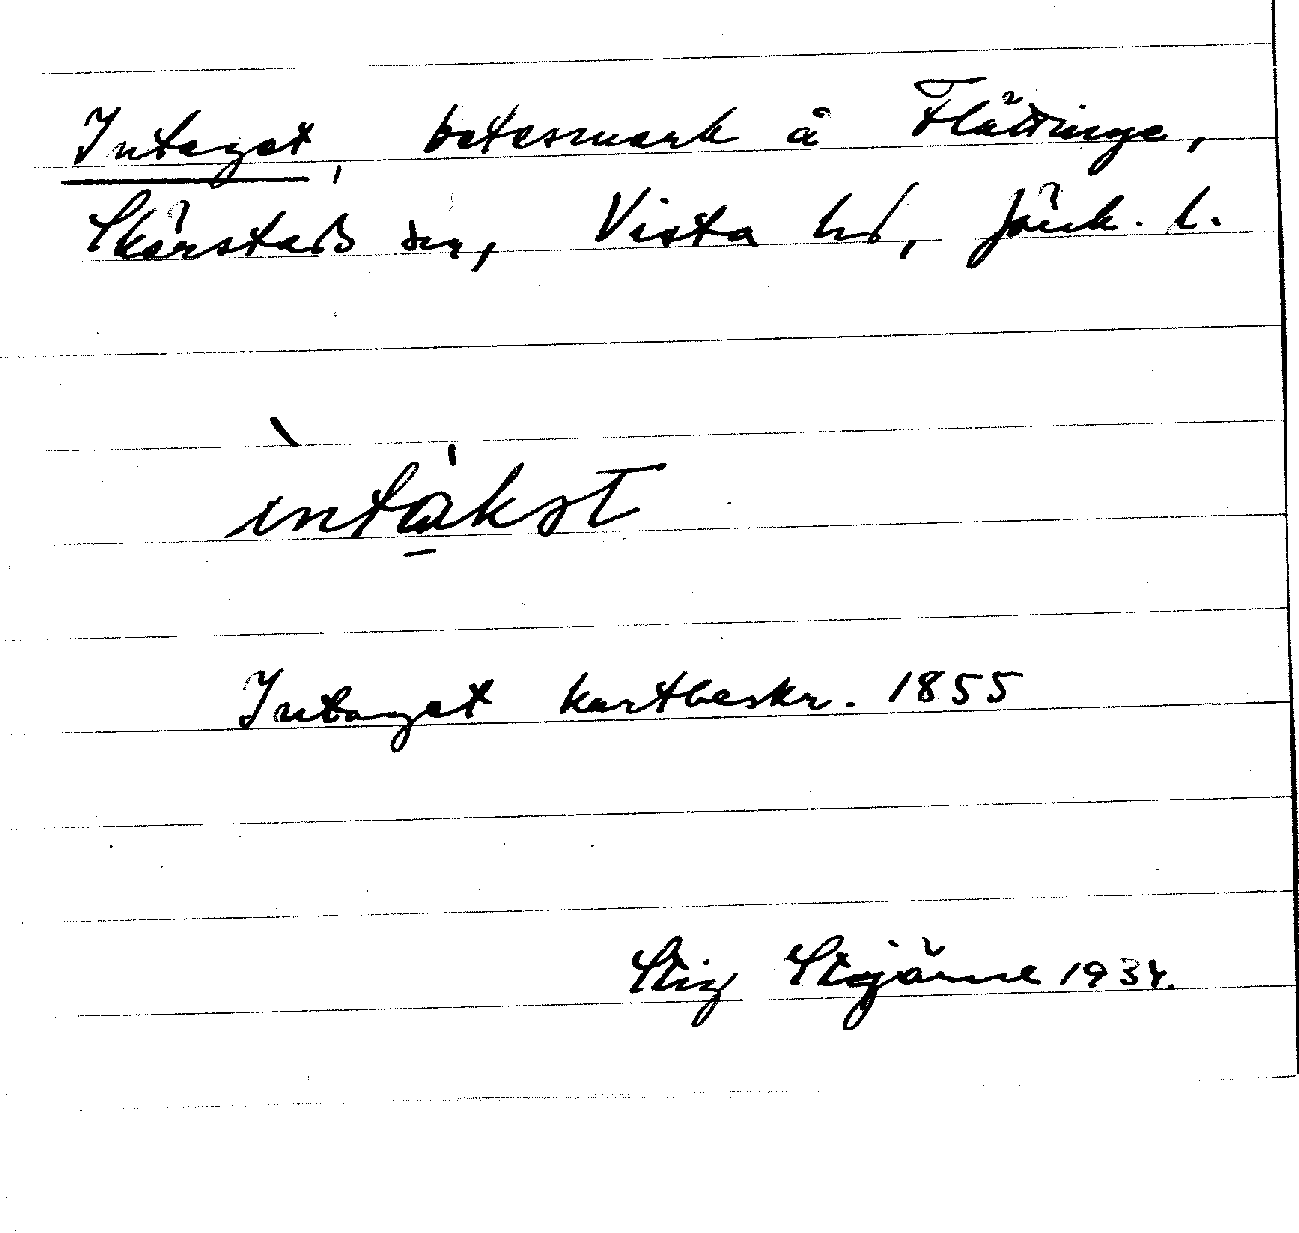 Intaget, betesmark å Flättinge,
Skärstads sn, Vista hd, Jönk. l.
ìntákst
Intaget kartbeskr. 1855
Stig Stgärne 1934.